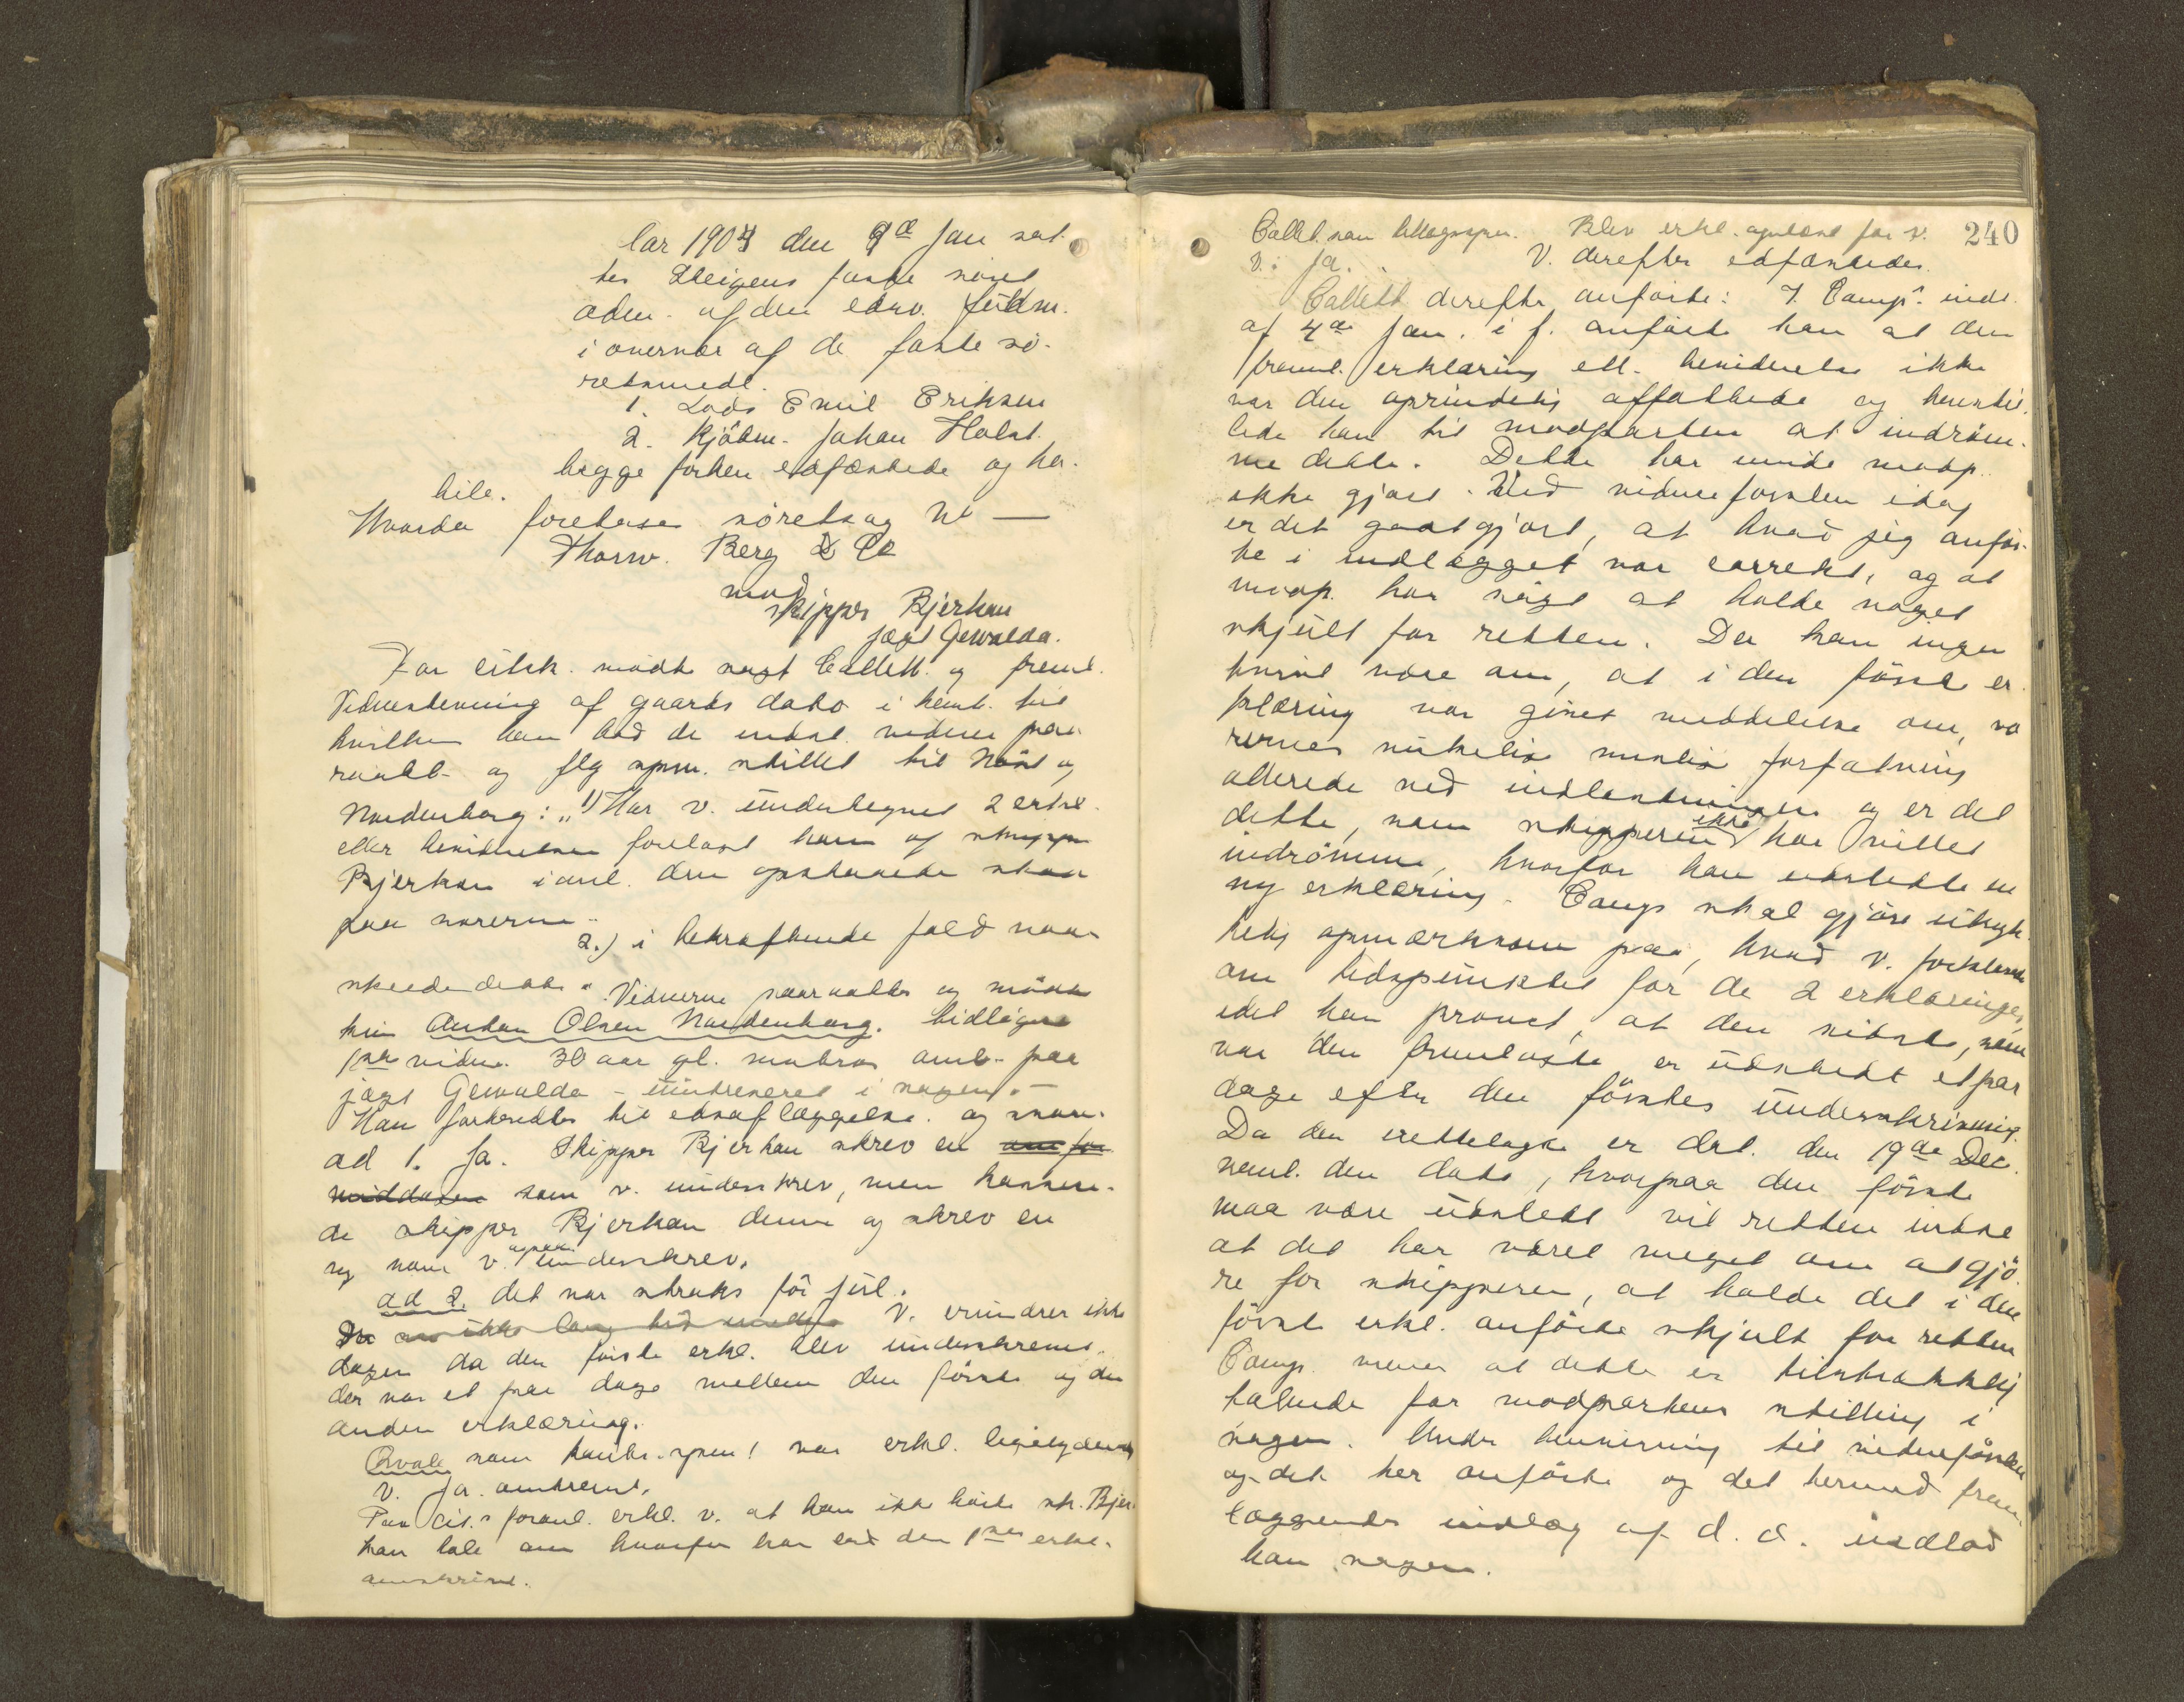 Aar 1904 den 9de Jan sat-
tes Steigens faste søret
adm. af den edsv. fuldm.
i overvær af de faste sø-
retsmedl.
1. Lods Emil Eriksen
2. Kjøbm. Johan Holst
begge forhen edfæstede og ha-
bile.
Hvorda foretoges søretssag No —
Thorv. Berg & Co
mod
skipper Bjerkan
jægt Gewalda.
For citsk. mødte sagf Collett og freml.
Vidnestevning af gaards dato i henh. til
hvilken han bad de indst. vidner paa-
raabt og flg spm. stillet til Høst og
Nordenborg: „1) Har v. undertegnet 2 erkl.
eller bevidnelser forelagt ham af skipper
Bjerkan i anl. den opstaaede skade
paa varerne
2.) i bekræftende fald naar
skeede dette“. Vidnerne paaraabtes og mødte
kun Anton Olsen Nordenborg. tidligere
1ste vidne. 30 aar gl. matros omb. paa
jægt Gewalda – uintreseret i sagen. —
Han forberedtes til edsaflæggelse. og svar.
ad 1. Ja. Skipper Bjerkan skrev en
middagen som v. underskrev, men kassere-
de skipper Bjerkan denne og skrev en
ny som v. ogsaa underskrev.
ad 2. det var straks før jul.
V. erindrer ikke
dagen da den første erkl. blev underskrevet.
der var et par dage mellem den første og den
anden erklæring.
som kontr. spm! var erkl. ligelydende
V. Ja. omtrent.
Paa cit.s foranl. erkl. v. at han ikke hørte sk. Bjer-
kan tale om hvorfor han lod den 1ste erkl.
omskrive.
240
Collet som tillægsspm. Blev erkl. oplæst for v.
v.: Ja. V. derefter edfæstedes.
Collett derefter anførte: I Camps indl.
af 4de Jan. i f. anførte han at den
freml. erklæring ell. bevidnelse ikke
var den oprindelig affattede og henstil-
lede han til modparten at indrøm-
me dette. Dette har imid modp.
ikke gjort. Ved vidneførslen idag
er det godtgjort, at hvad jeg anfør-
te i indlægget var correkt, og at
modp. har søgt at holde noget
skjult for retten. Der kan ingen
tvivl være om, at i den første er-
klæring var givet meddelelse om, va-
rernes forfatning
allerede ved indlastningen og er det
dette, som skipperen ikke har villet
indrømme, hvorfor han udstedte en
ny erklæring. Camps skal gjøre
opmærksom paa, hvad v. forklarede
om tidspunktet for de 2 erklæringer,
idet han provet, at den sidste, som
var den fremlagte er udstedt et par
dage efter den førstes underskrivning.
Da den irettelagte er dat. den 19de Dec.
neml. den dato, hvorpaa den første
maa være udstedt vil retten indse
at det har været meget om at gjø-
re for skipperen, at holde det i den
første erkl. anførte skjult for retten
Camp. mener at dette er tilstrækkelig
talende for modpartens stilling i
sagen. Under henvisning til vidneførslen
og det her anførte og det hermed frem-
læggende indlæg af d. d. indlod
han sagen.